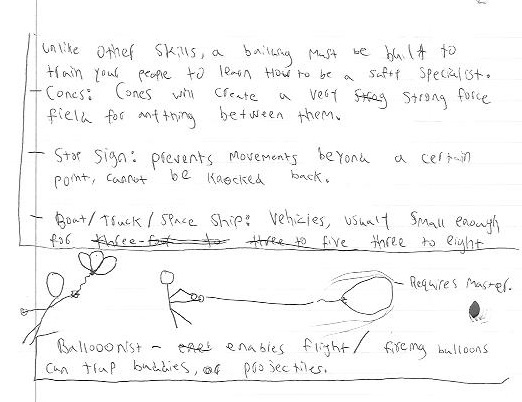 Unlike other skills, a building must be built to
train your people to learn how to be a safty specialist.
- Cones: Cones will create a very strog strong force
field for anthing between them.
- Stop Sign: prevents movements beyond a certain
point, cannot be knocked back.
- Boat/Truck/Space Ship: Vehicles, usualy small enough
for three to three to five three to eight
- Requires Master.
Ballooonist - enables flight/ fireing balloons
can trap baddies, or projectiles.